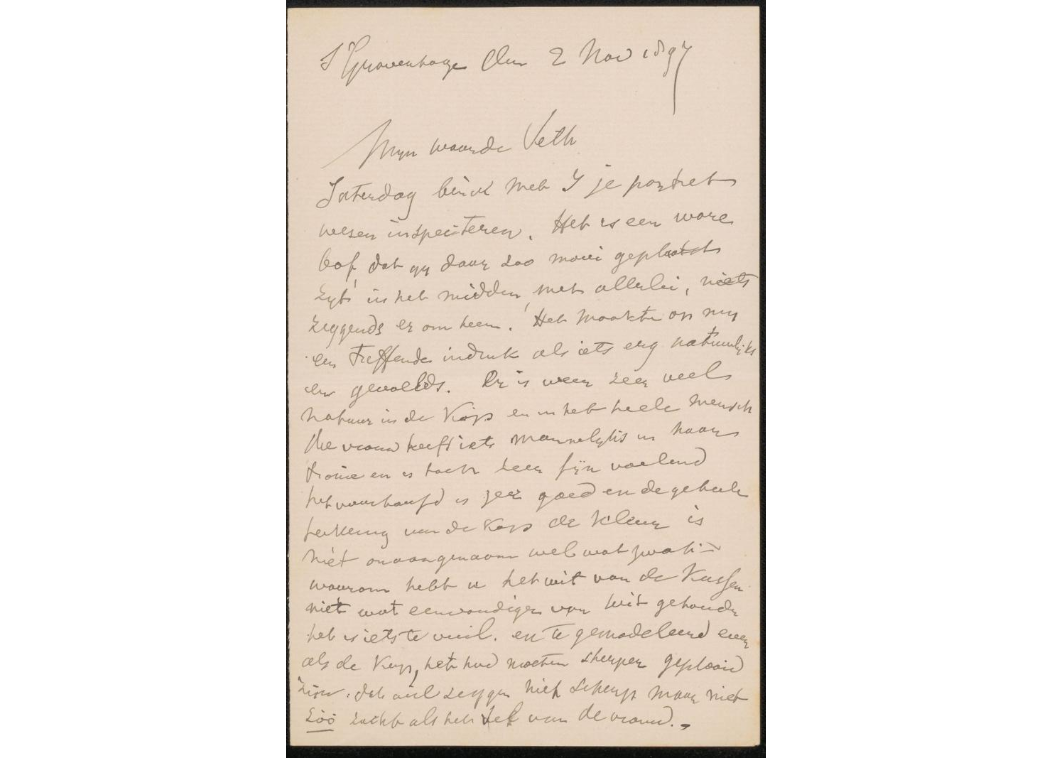 S'Gravenhage den 2 Nov 1897
Myn waarde Veth
Saterdag ben ik met J je portret
wesen inspecteren. Het is een ware
bof, dat gy daar zoo mooi geplaatst
zyt in het midden, met allerlei, niets
zeggends er om heen. Het maakte op my
een treffende indruk als iets erg natuurlijks
en gevoelds. Er is weer zeer veel
natuur in de Kop en in het heele mensch
die vrouw heeft iets mannelyks in haar
tronie en is toch zeer fijn voelend
het voorhoofd is zeer goed en de geheele
teekening van de Kop de Kleur is
niet onaangenaam wel wat zwart
waarom hebt u het wit van de Kussen
niet wat eenvoudiger van wit gehouden
het is iets te vuil. en te gemodeleerd even
als de Kap, het had moeten scherper geplooid
zijn. dat wil zeggen niet scherp maar niet
zóó zacht als het vel van de vrouw.